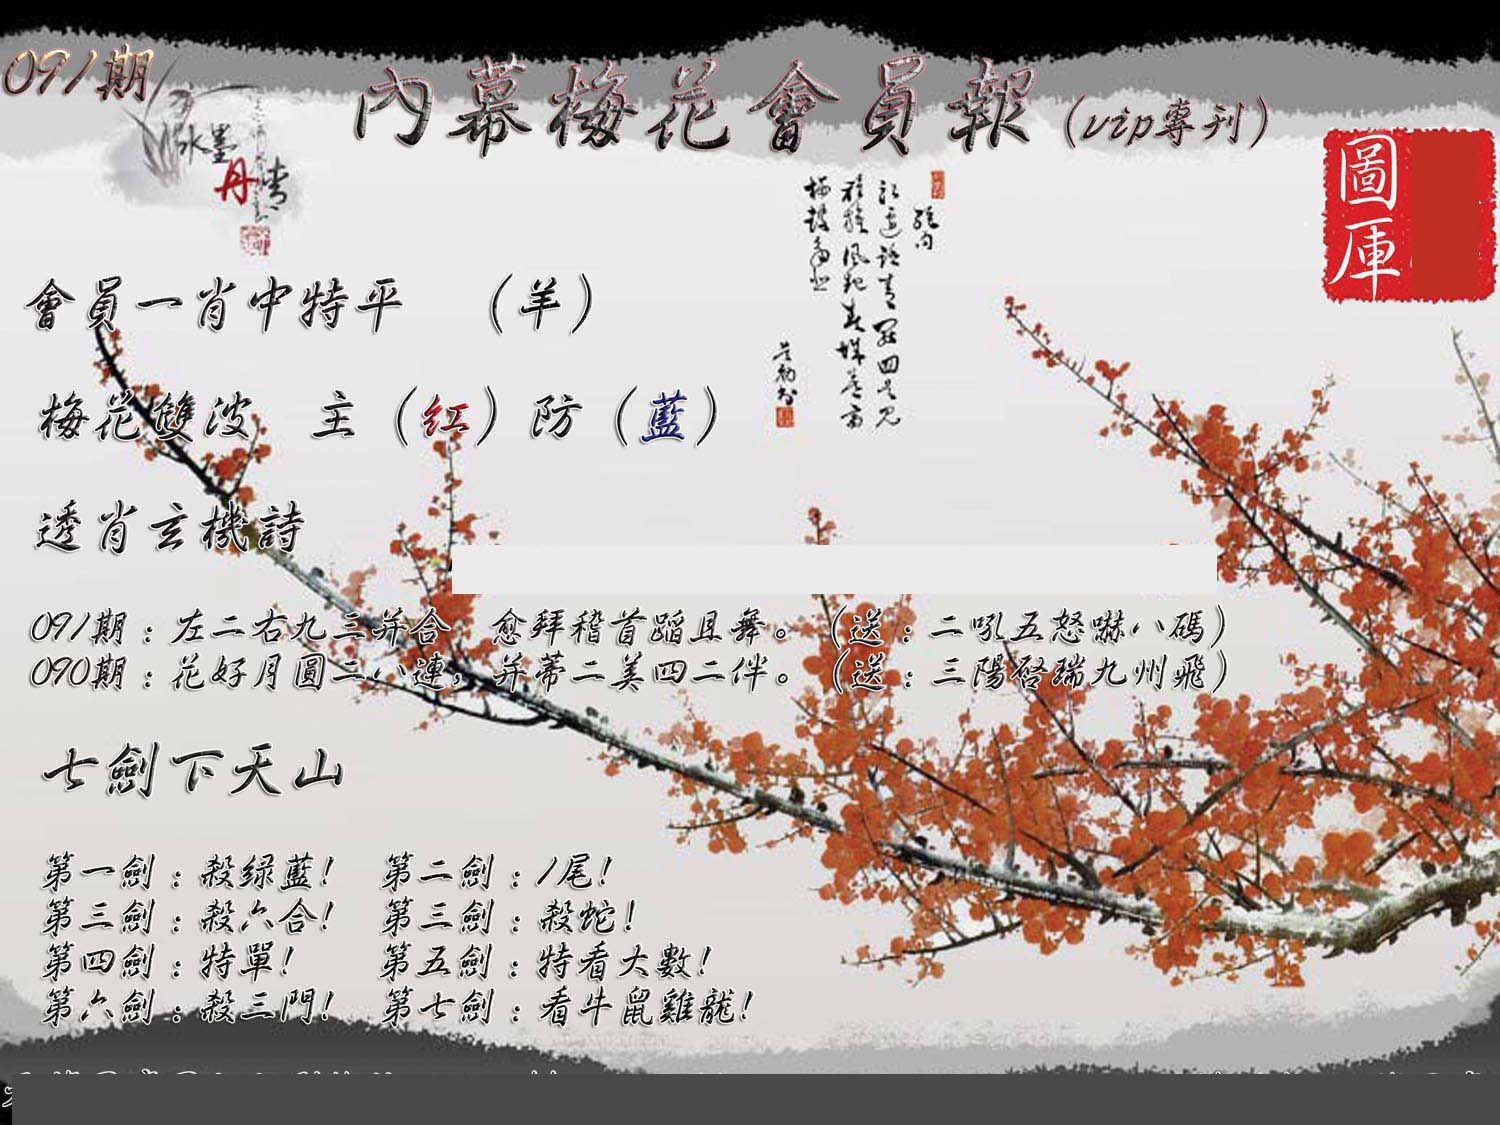 091期
內幕梅花會員報(vip專刊)
水墨
丹青
圖
庫
會員一肖中特平 （羊）
梅花雙波 主（红）防（藍）
透肖玄機詩
091期：左二右九三并合 愈拜稽首蹈且舞。（送：二吼五怒嚇八碼）
090期：花好月圓二八連，并蒂二美四二伴。（送：三陽啓瑞九州飛）
七劍下天山
第一劍：殺绿藍! 第二劍：1尾!
第三劍：殺六合! 第三劍：殺蛇!
第四劍：特單! 第五劍：特看大數!
第六劍：殺三門! 第七劍：看牛鼠雞龍!